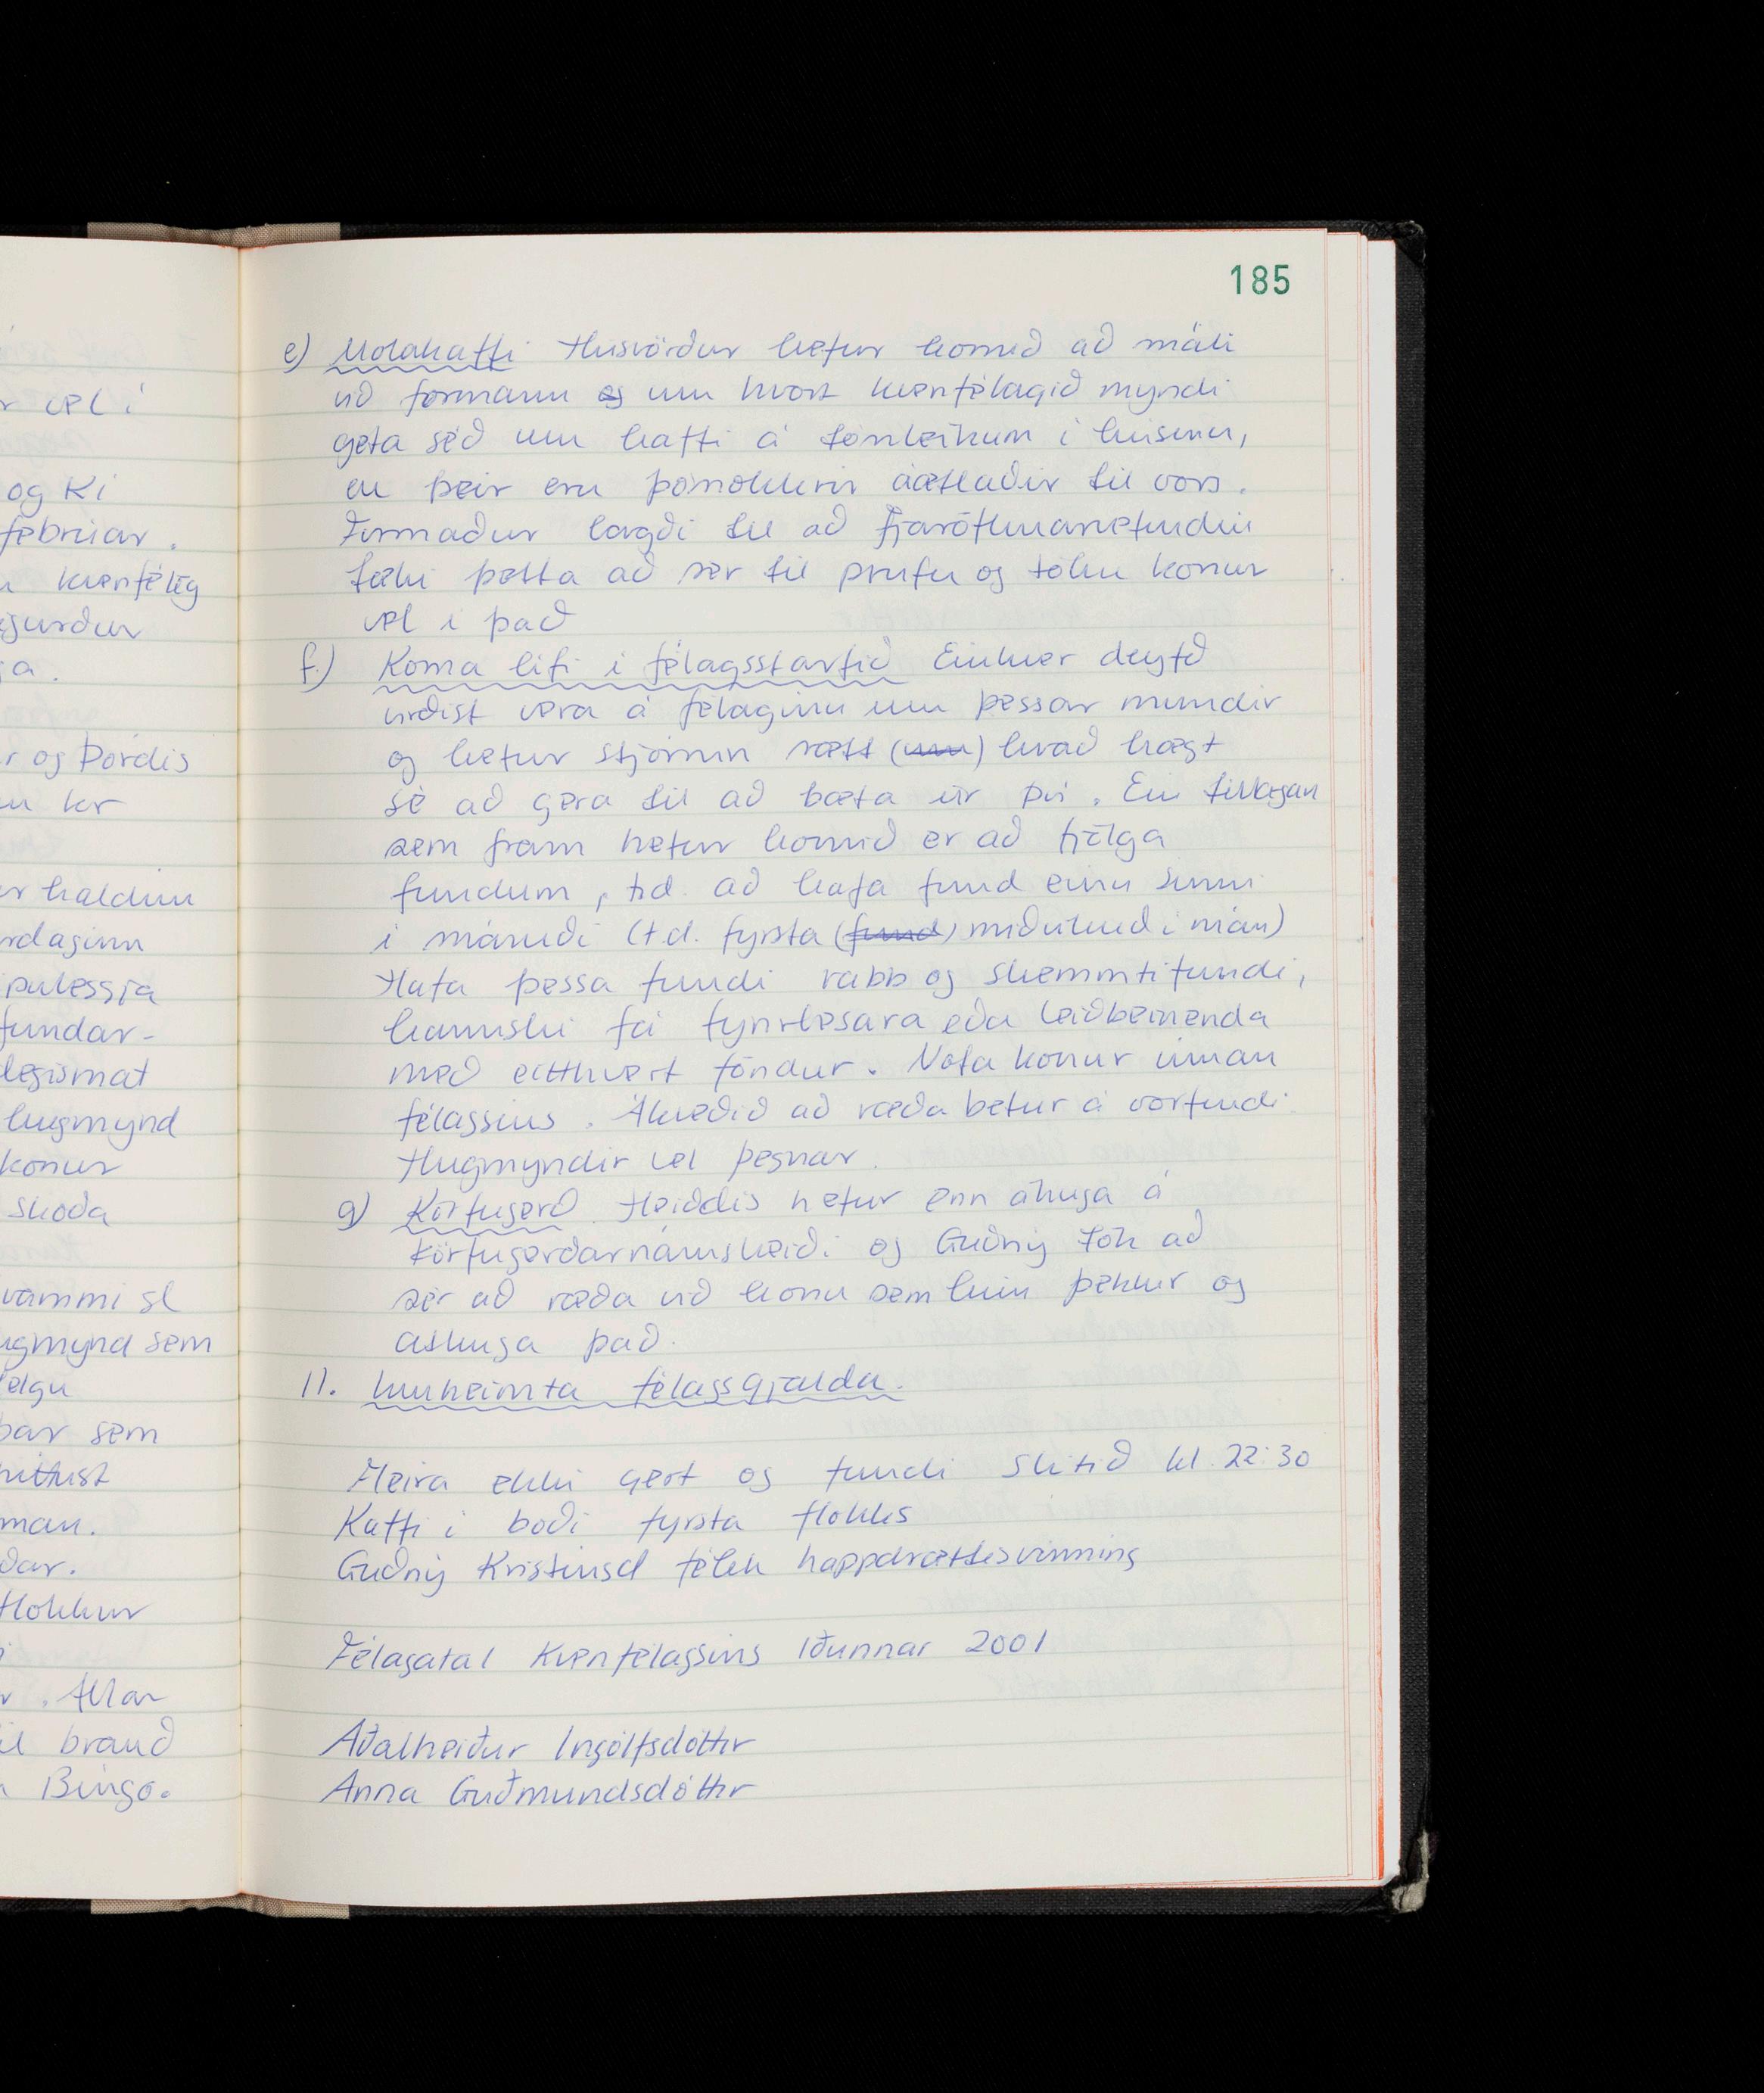 185
e) Molakaffi Húsvörður hefur komið að máli
við formann og um hvort kvenfélagið myndi
geta séð um kaffi á tónleikum í húsinu,
en þeir eru þónokkrir áætlaðir til vors.
Formaður lagði til að fjaröflunarnefndin
tæki þetta að sér til prufu og tóku konur
vel í það
f.) Koma lífi í félagsstarfið Einhver deyfð
virðist vera á félaginu um þessar mundir
og hefur stjórnin rætt (um) hvað hægt
sé að gera til að bæta úr því. Ein tillagan
sem fram hefur komið er að fjölga
fundum, t.d. að hafa fund einu sinni
í mánuði (t.d. fyrsta (fund) miðvikud í mán)
Hafa þessa fundi rabb og skemmtifundi,
kannski fá fyrirlesara eða leiðbeinenda
með eitthvert föndur. Nota konur innan
félagsins. Ákveðið að ræða betur á vorfundi
Hugmyndir vel þegnar.
g) Körfugerð. Heiðdís hefur enn áhuga á
körfugerðarnámskeiði og Guðný tók að
sér að ræða við konu sem hún þekkur og
ashuga það.
11. Innheimta félagsgjalda.
Fleira ekki gert og fundi slitið kl. 22:30
Kaffi í boði fyrsta flokks
Guðný Kristinsd fékk happdrættisvinning
Félagatal Kvenfélagsins Iðunnar 2001
Aðalheiður Ingólfsdóttir
Anna Guðmundsdóttir
r vel í
og KÍ
febrúar.
kvenfélög
ga.
r og Þórdís
er haldinn
fundar-
hugmynd
konur
skoða
ugmynd sem
þar sem
flokkur
r. Allar
til brauð
Bingó.